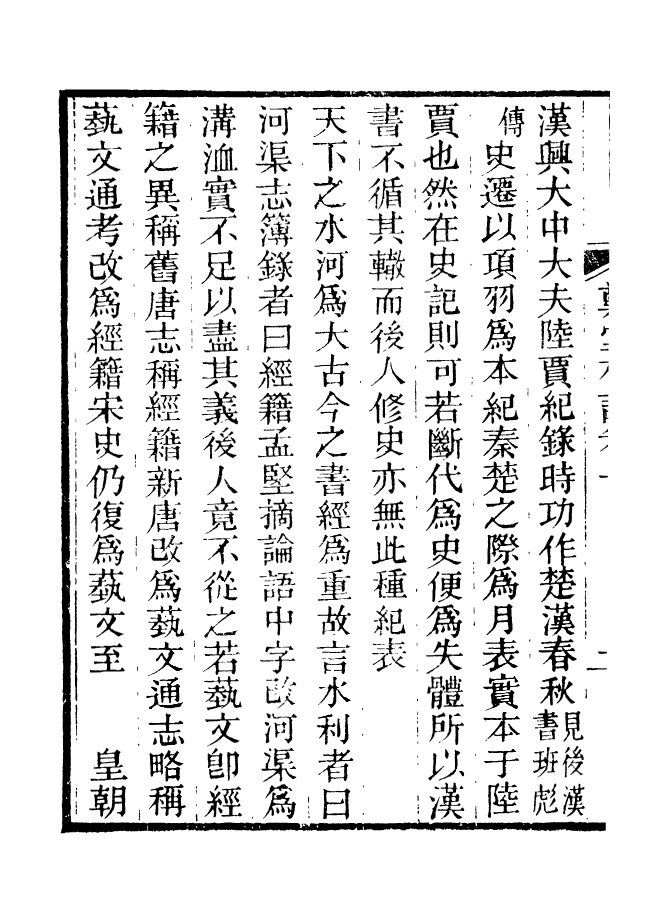 漢興大中大夫陸賈紀錄時功作楚漢春秋見後漢書班彪
傳史遷以項羽爲本紀秦楚之際爲月表實本于陸
賈也然在史記則可若斷代爲史便爲失體所以漢
書不循其轍而後人修史亦無此種紀表
天下之水河爲大古今之書經爲重故言水利者曰
河渠志簿錄者曰經籍孟堅摘論語中字改河渠爲
溝洫實不足以盡其義後人竟不從之若藝文卽經
籍之異稱舊唐志稱經籍新唐改爲藝文通志略稱
藝文通考改爲經籍宋史仍復爲藝文至　皇朝